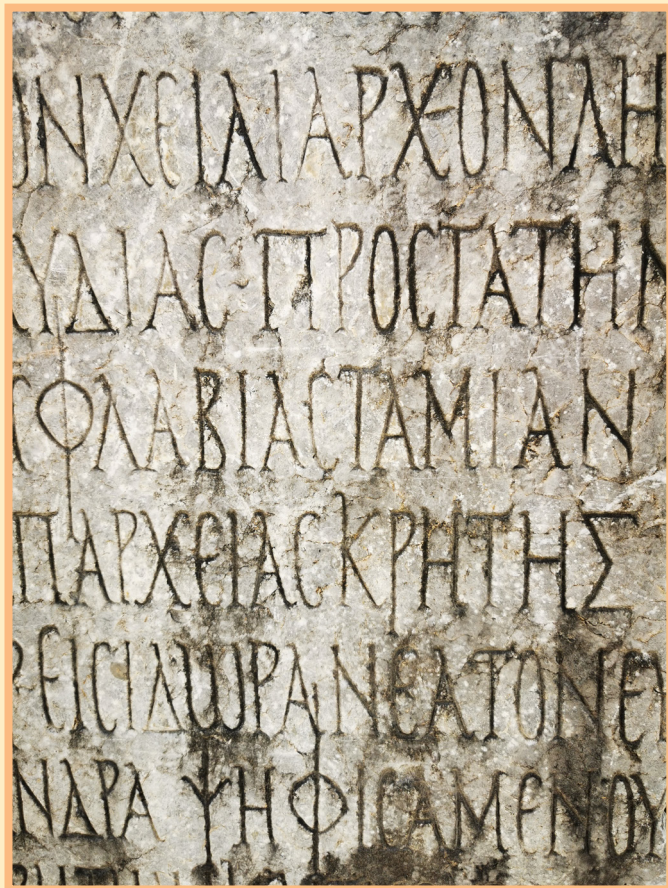 ΟΝΧΕΙΛΙΑΡΧΟΝΛΗ
ΥΔΙΑϹ ΠΡΟϹΤΑΤΗΝ
ϹΦΛΑΒΙΑϹΤΑΜΙΑΝ
ΠΑΡΧΕΙΑϹΚΡΗΤΗΣ
ΡΕΙϹΙΔΩΡΑΝΕΑΤΟΝΕΥ
ΝΔΡΑΨΗΦΙϹΑΜΕΝΟΥ